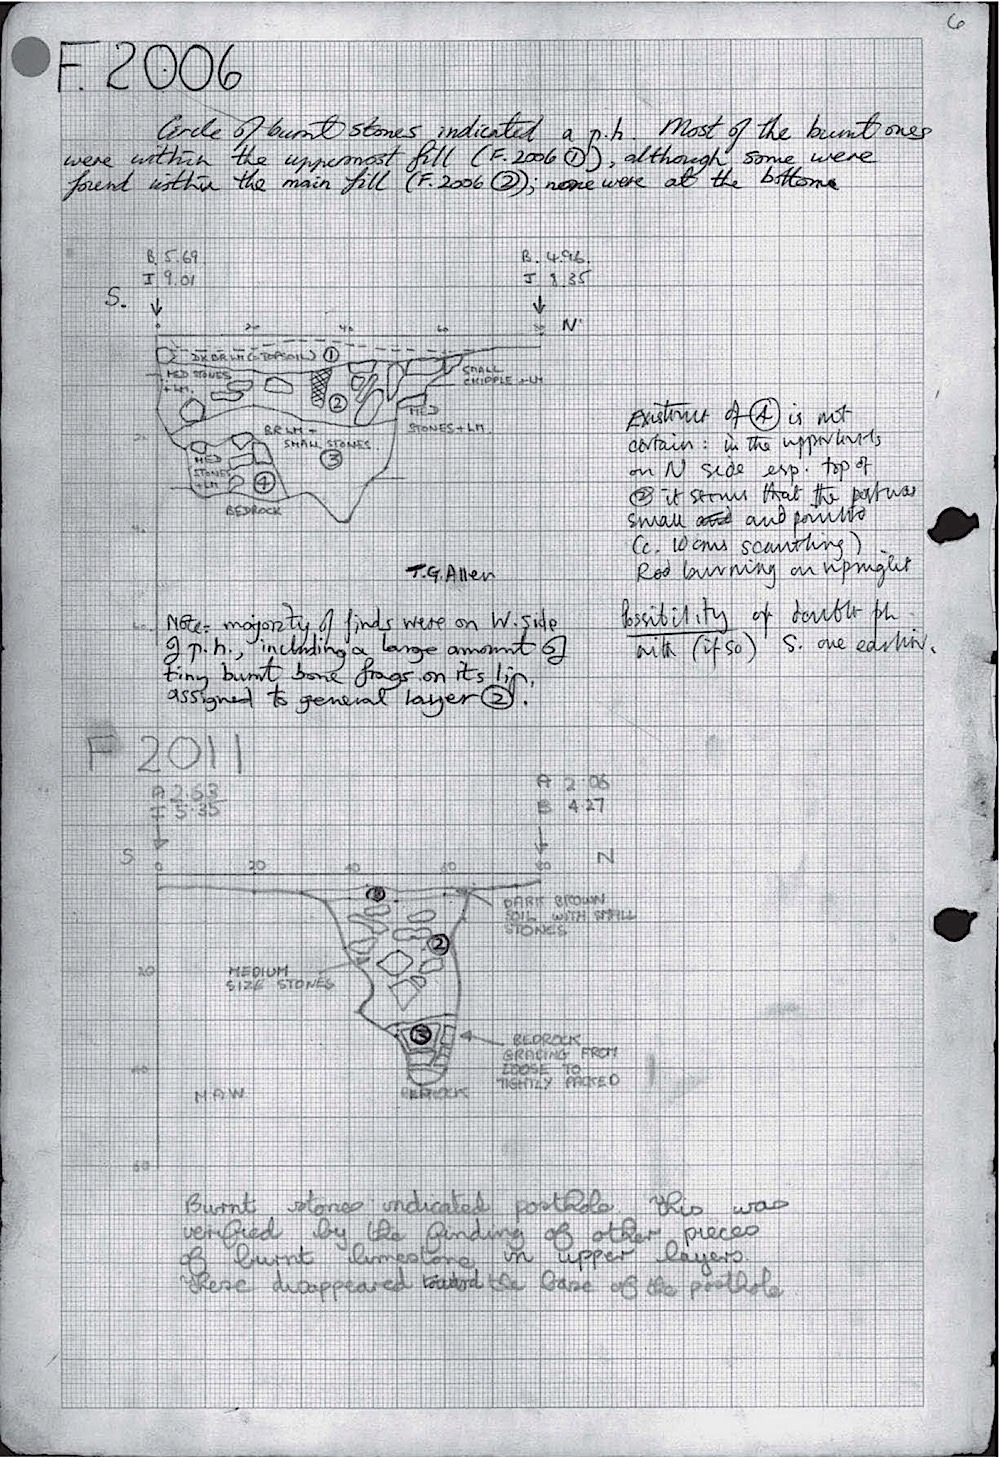 6
F. 2006
Circle of burnt stones indicated a p.h. Most of the burnt ones
were within the uppermost fill (F. 2006 ①), although some were
found within the main fill (F. 2006 ②); none were at the bottom
B. 5.69
I 9.01
B. 4.96.
J 8.35
S.
0 20 40 60 80 N
DK BR LM (=TOPSOIL) ①
MED STONES
+ LM.
SMALL
CHIPPLE + LM
②
MED
STONES + LM.
BR LM +
SMALL STONES
③
MED
STONES
+ LM
④
BEDROCK
20
40
60
Existence of ④ is not
certain: in the upper
on N side esp. top of
② it seems that the post was
small and pointed
(c. 10 cms scantling)
Red burning on upright
Possibility of double ph
with (if so) S. one earlier.
T.G. Allen
Note: majority of finds were on W. side
of p.h., including a large amount of
tiny burnt bone frags on its lip,
assigned to general layer ②.
F 2011
A 2.53
I 5.35
A 2.06
B 4.27
S 0 20 40 60 80 N
①
DARK BROWN
SOIL WITH SMALL
STONES
②
20
MEDIUM
SIZE STONES
③
BEDROCK
GRADING FROM
LOOSE TO
TIGHTLY PACKED
40
BEDROCK
M.A.W.
60
Burnt stones indicated posthole. This was
verified by the finding of other pieces
of burnt limestone in upper layers.
These disappeared toward the base of the posthole